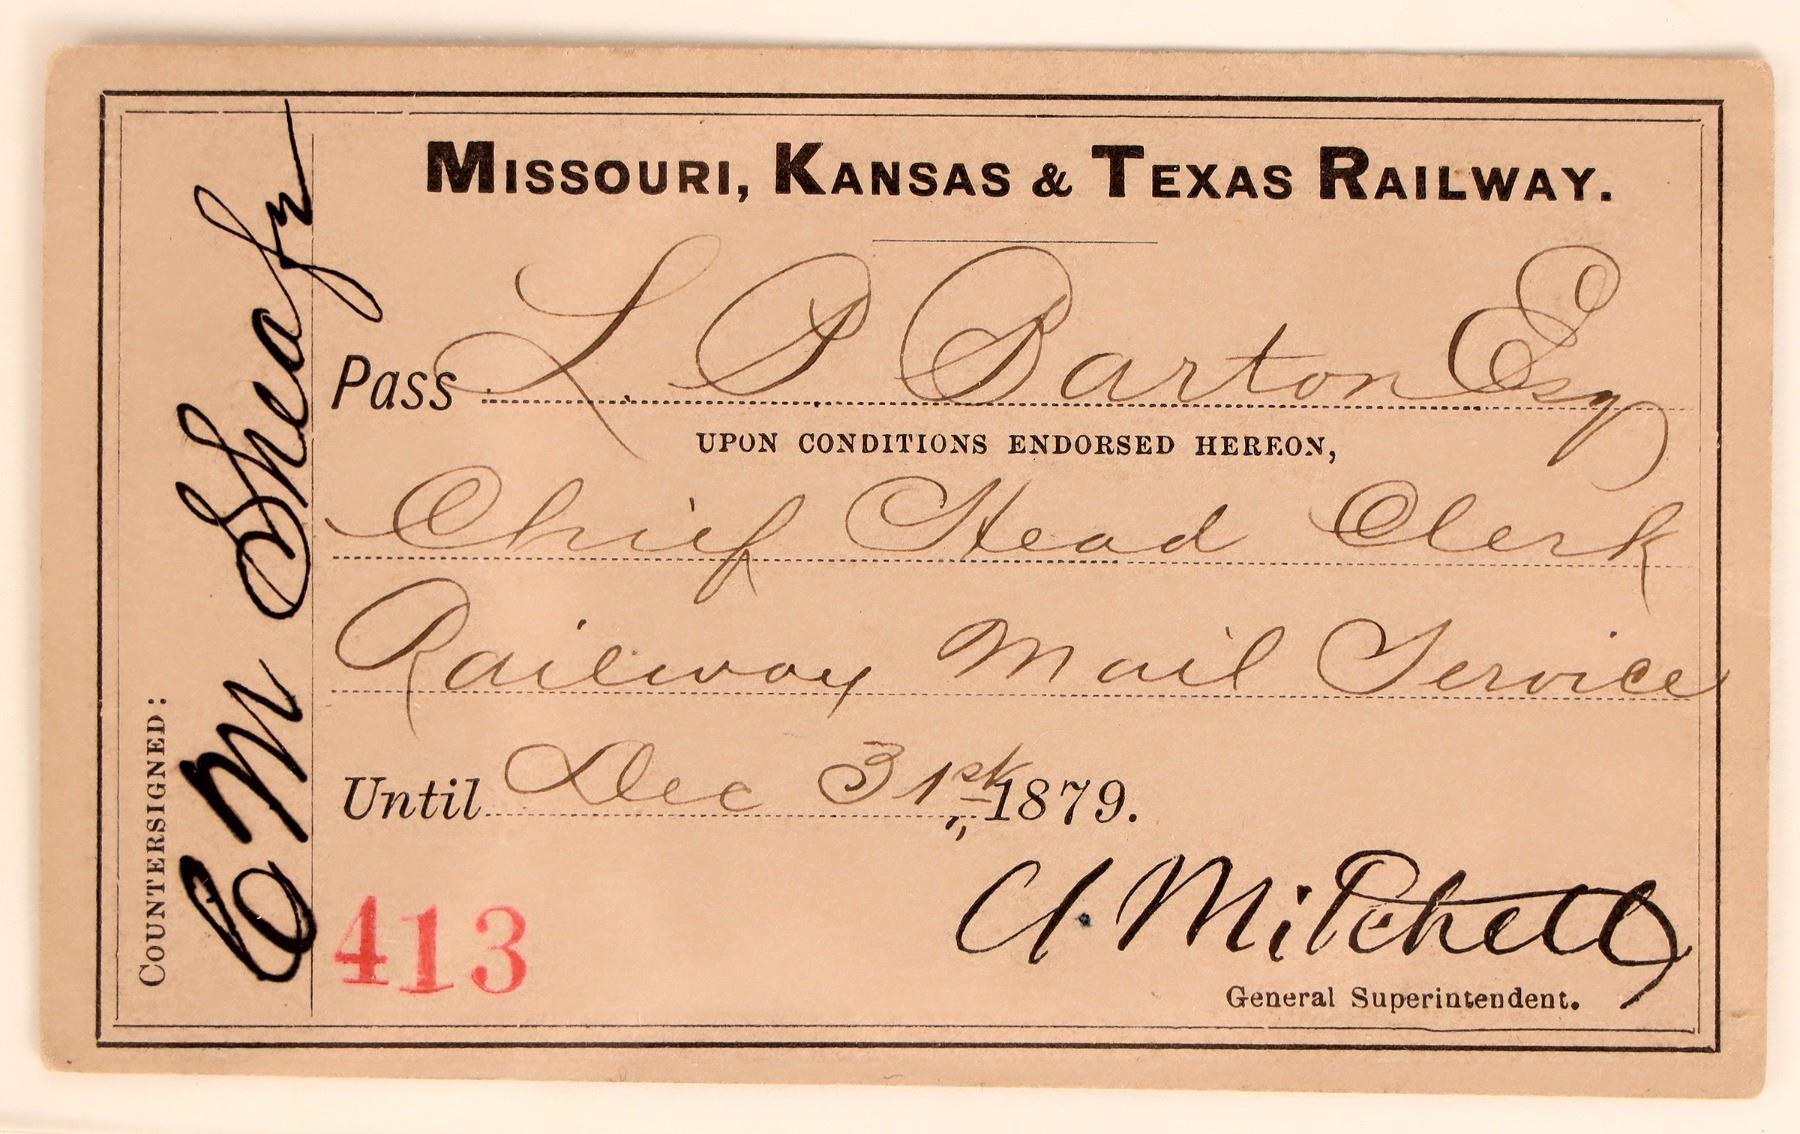 MISSOURI, KANSAS & TEXAS RAILWAY.
Pass L P Barton Esq
UPON CONDITIONS ENDORSED HEREON,
Chief Head Clerk
Railway Mail Service
Until Dec 31st, 1879.
413
A. Mitchell
General Superintendent.
COUNTERSIGNED:
C M Sheafr